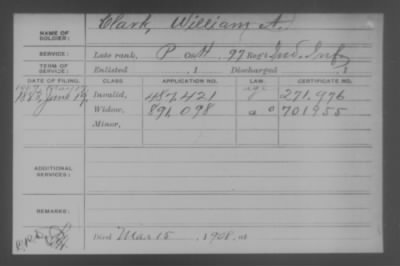 NAME OF SOLDIER: Clark, William A.
SERVICE: Late rank, P Co. H 97 Reg't Ind. Inf.
TERM OF SERVICE: Enlisted , 1 Discharged , 1
DATE OF FILING. CLASS APPLICATION NO. LAW CERTIFICATE NO.
1883, June 19 Invalid, 487,421 age 271,996
Widow, 891,098 701955
Minor,
ADDITIONAL SERVICES:
REMARKS:
Died Mar 15, 1908, at